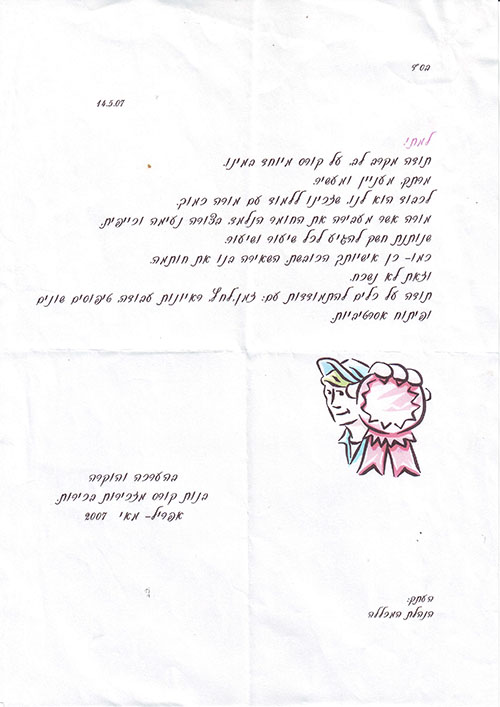 בס"ד
14.5.07
למתי:
תודה מקרב לב. על קורס מיוחד במינו.
מרתק, מעניין ומעשיר.
לכבוד הוא לנו, שזכינו ללמוד עם מורה כמוך.
מורה אשר מעבירה את החומר הנלמד. בצורה נעימה וכייפית.
שנותנת חשק להגיע לכל שיעור ושיעור.
כמו- כן אישיותך הכובשת. השאירה בנו את חותמה.
וזאת לא נשכח.
תודה על כלים להתמודדות עם: זמן, לחץ, ראיונות עבודה, טיפוסים שונים
ופיתוח אסרטיביות.
בהערכה והוקרה
בנות קורס מזכירות בכירות
אפריל- מאי 2007
העתק:
הנהלת המכללה